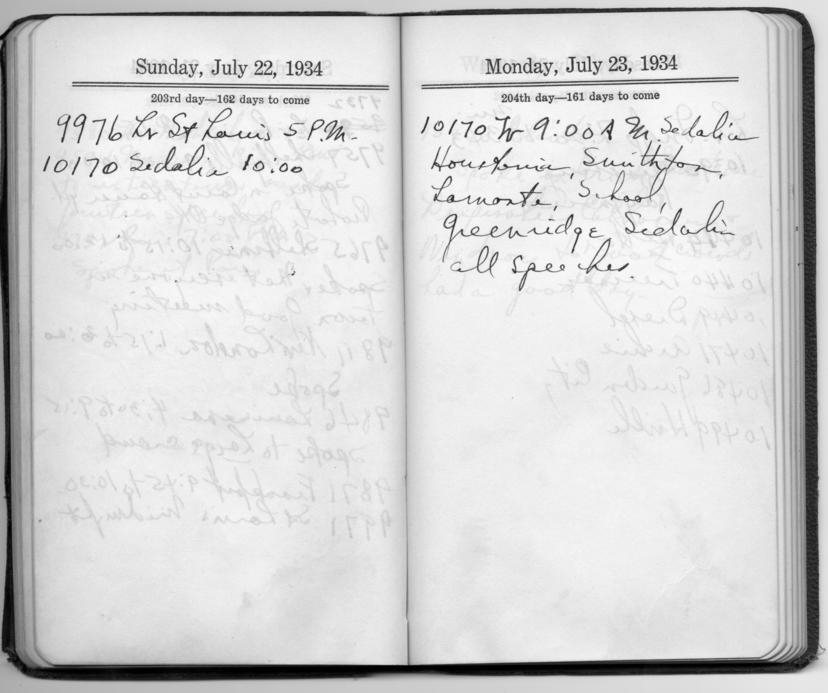 Sunday, July 22, 1934
203rd day—162 days to come
9976 Lv St Louis 5 P.M.
10170 Sedalia 10:00
Monday, July 23, 1934
204th day—161 days to come
10170 Lv 9:00 A M. Sedalia
Houstonia, Smithton,
Lamonte, School,
Greenridge Sedalia
all speeches.